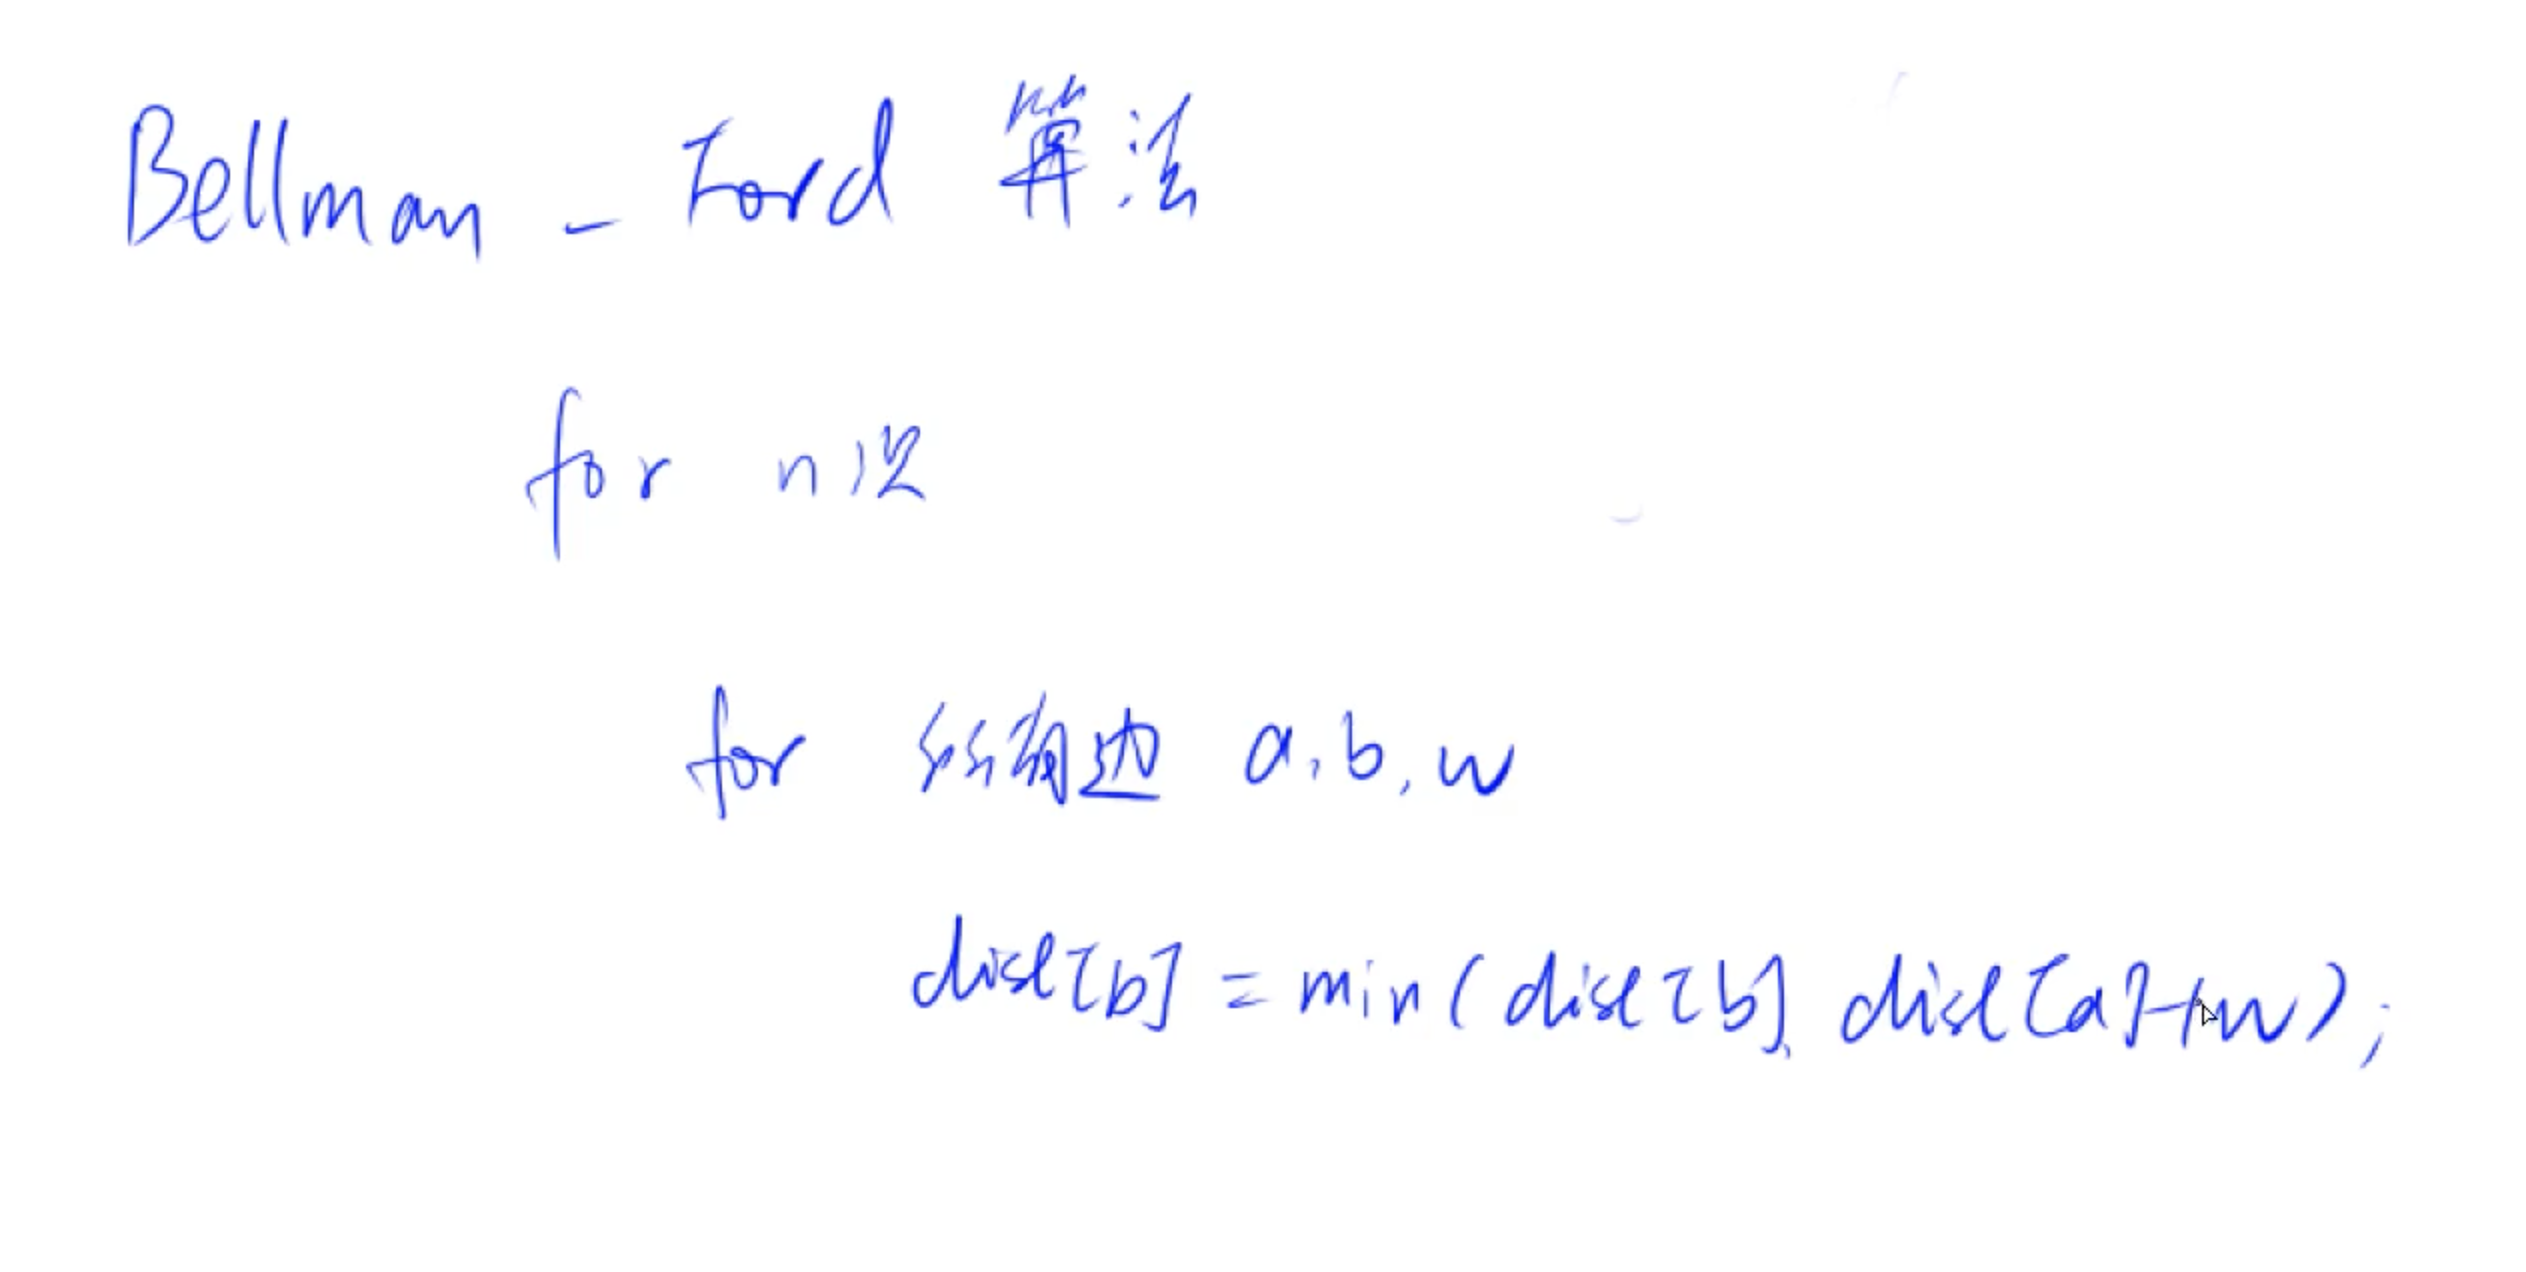 Bellman - Ford 算法
for n次
for 所有边 a,b,w
dist[b] = min(dist[b], dist[a]+w);